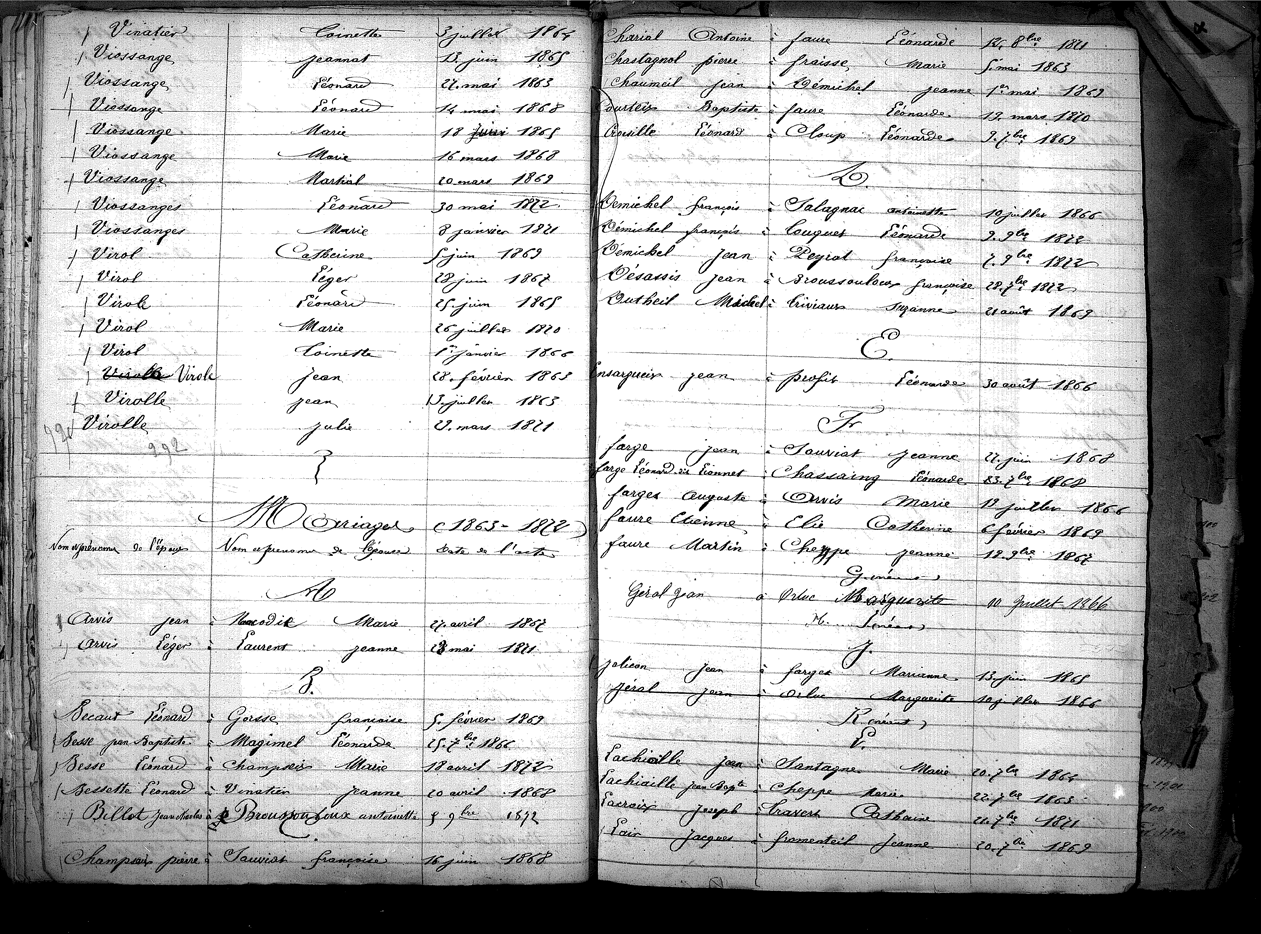 Vinatier Toinette 3 juillet 1864
Viossange jeannot 13 juin 1865
Viossange Léonard 22 mai 1863
Viossange Léonard 14 mai 1868
Viossange Marie 18 juin 1865
Viossange Marie 16 mars 1868
Viossange Martial 20 mars 1869
Viossanges Léonard 30 mai 1872
Viossanges Marie 8 janvier 1871
Virol Catherine 5 juin 1869
Virol Léger 28 juin 1867
Virol Léonard 25 juin 1865
Virol Marie 26 juillet 1870
Virol Toinette 1er janvier 1866
Virolle Virole jean 28 février 1863
Virolle jean 13 juillet 1863
Virolle julie 22 mars 1871
292
Z
Mariages (1863-1872)
Nom et prénoms de l'époux Nom et prénoms de l'épouse Date de l'acte
A
Arvis jean à Nacodie Marie 27 avril 1867
Arvis Léger à Laurent jeanne 23 mai 1871
B.
Becaud Léonard à Gorsse françoise 5 février 1869
Besse jean Baptiste à Magimel Léonarde 25 7bre 1866
Besse Léonard à Champeix Marie 18 avril 1872
Bessette Léonard à Vinatier jeanne 20 avril 1868
Billot Jean Charles à Broussouloux antoinette 5 9bre 1872
C.
Champeix pierre à Sauviat françoise 16 juin 1868
Chariol Antoine à faure Léonarde 14 8bre 1871
Chastagnol pierre à fraisse Marie 5 mai 1863
Chaumeil jean à Démichel jeanne 1er mai 1869
Courteix Baptiste à faure Léonarde 12 mars 1870
Crouzille Léonard à Cloup Léonarde 9 7bre 1869
D.
Demichel françois à Salagnac antoinette 10 juillet 1866
Démichel françois à Louguet Léonarde 9 9bre 1872
Démichel jean à Peyrat françoise 7 9bre 1872
Desassis jean à Broussouloux françoise 28 7bre 1872
Dutheil Michel à Triviaux Suzanne 21 août 1869
E
Ensargueix jean à profit Léonarde 30 août 1866
F
farge jean à Sauviat jeanne 22 juin 1868
farge Léonard dit Lionnet à Chassaing Léonarde 23 7bre 1868
farges Auguste à Arvis Marie 12 juillet 1866
faure Etienne à Elie Catherine 6 février 1869
faure Martin à Cheppe jeanne 12 9bre 1867
G. néant
Géral Jean à Orluc Marguerite 10 Juillet 1866
H. néant
J.
jalicon jean à farges Marianne 13 juin 1865
jéral jean à Orluc Marguerite 10 juillet 1866
K néant
L.
Lachiaille jean à Santagne Marie 20 7bre 1864
Lachiaille jean Bapte à Cheppe Marie 22 7bre 1863
Lacroix joseph à Travers Catherine 21 7bre 1871
Lair Jacques à fromenteil Jeanne 20 7bre 1869